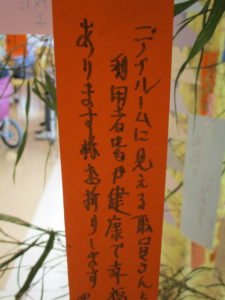 ごデイルームに見える職員さんと
利用者皆が健康で幸福で
あります様お祈りします